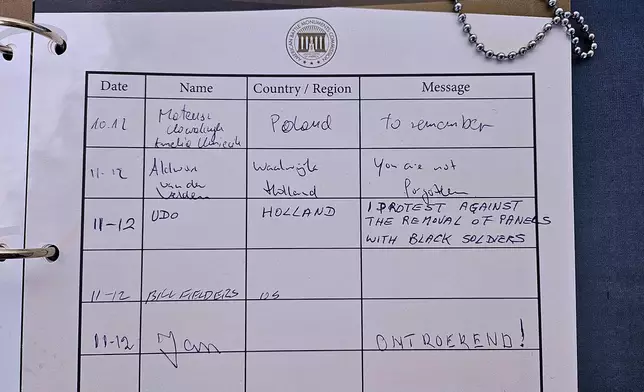 AMERICAN BATTLE MONUMENTS COMMISSION
Date Name Country / Region Message
10.12 Mateusz Poland to remember
11-12 Aldwin Waalwijk You are not
van der Holland forgotten
Velden
11-12 UDO HOLLAND I PROTEST AGAINST
THE REMOVAL OF PANELS
WITH BLACK SOLDIERS
11-12 BILL FIELDERS US
11-12 Jan ONTROEREND!